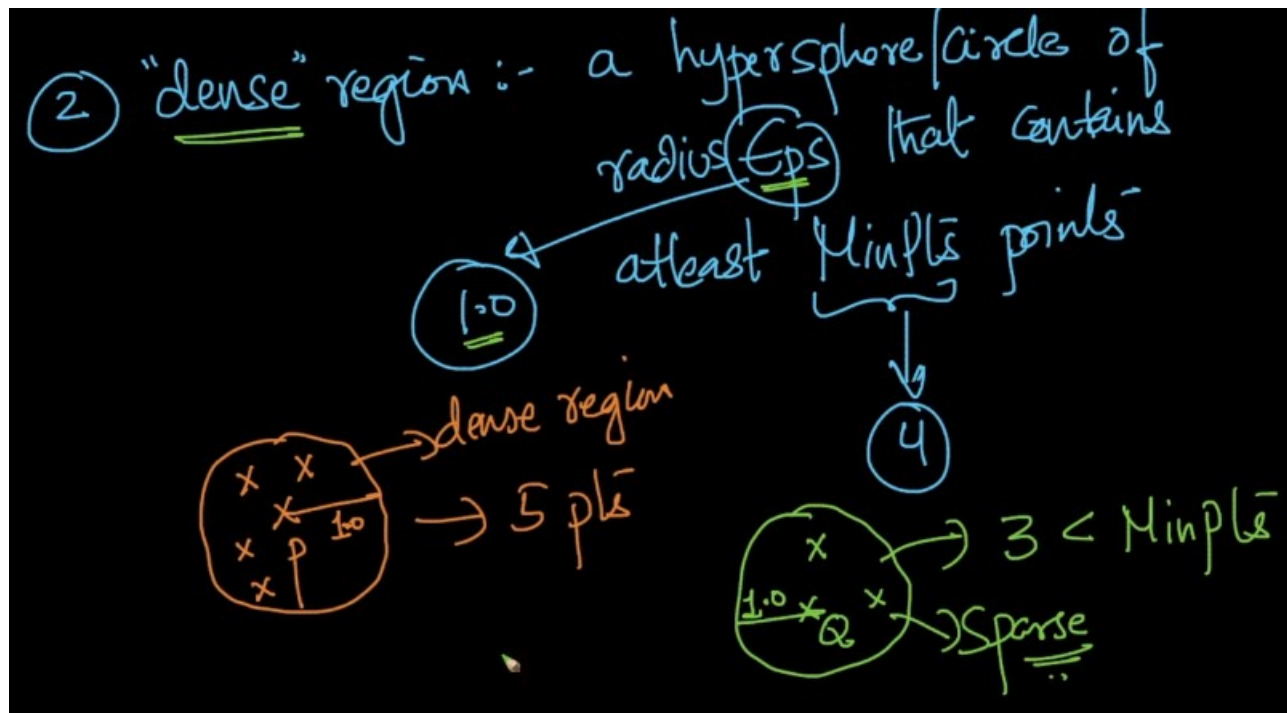 2 "dense" region :- a hypersphere/circle of
radius Eps that contains
atleast MinPts points
1.0
4
dense region
5 pts
1.0
P
3 < MinPts
1.0
Q
Sparse